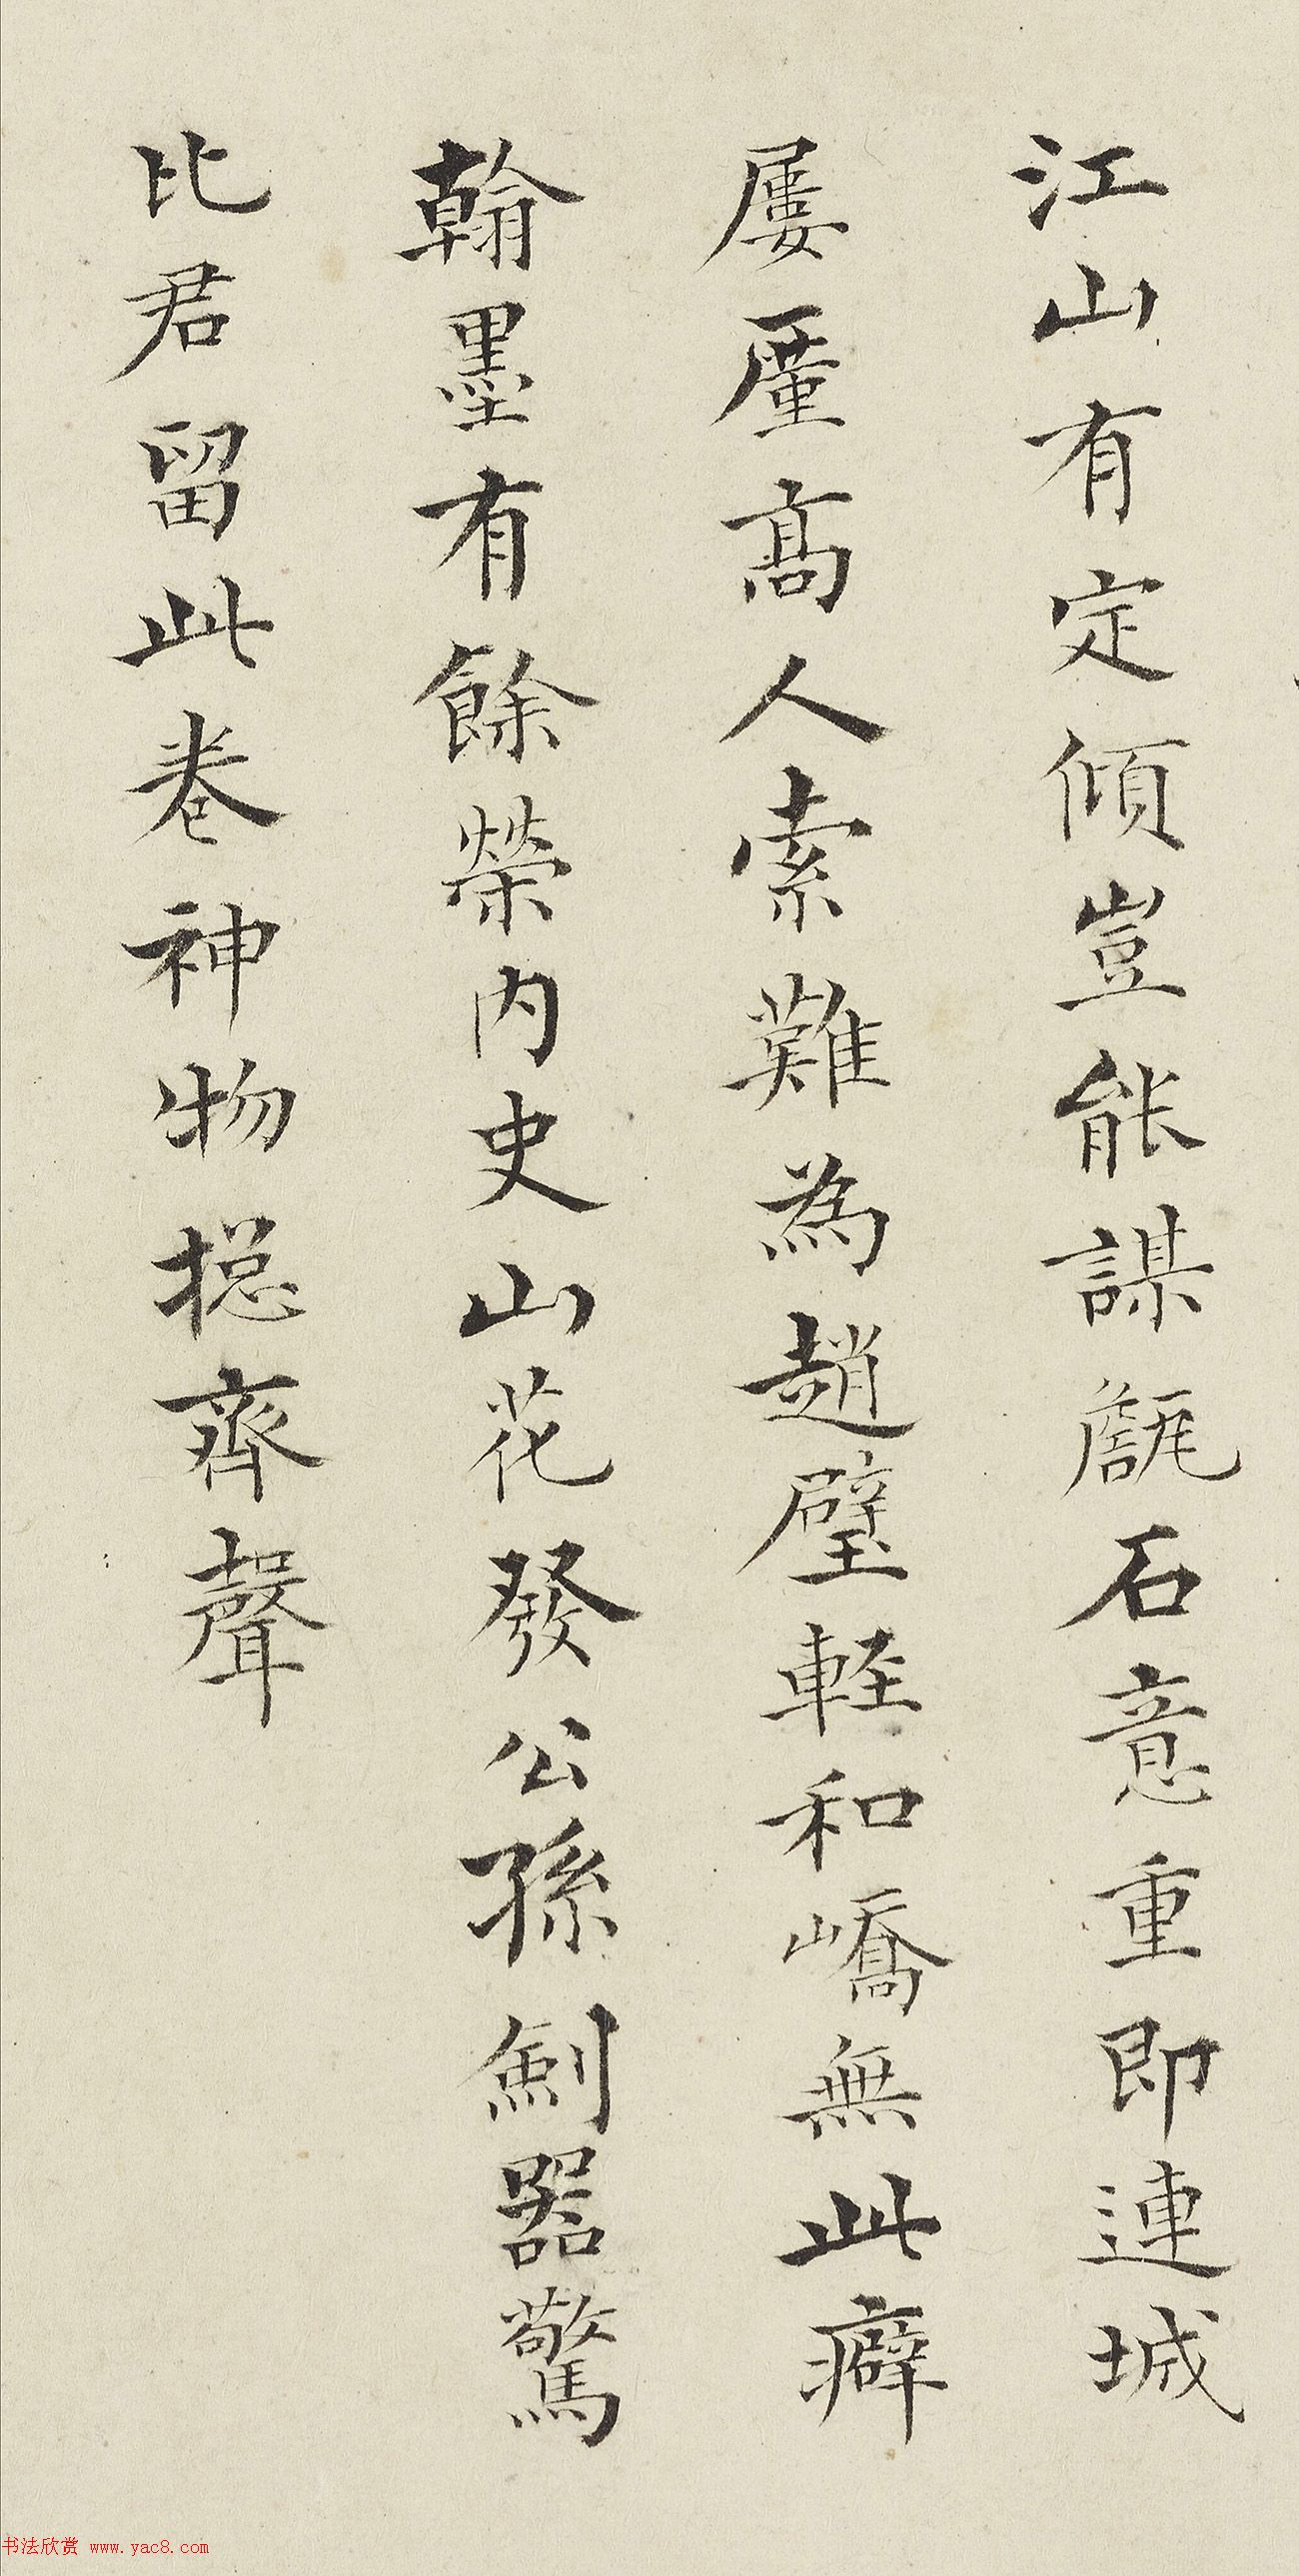 江山有定傾豈能謀甔石意重即連城
屢厪高人索難為趙璧輕和嶠無此癖
翰墨有餘榮内史山花發公孫劍器驚
比君留此卷神物揔齊聲
书法欣赏 www.yac8.com